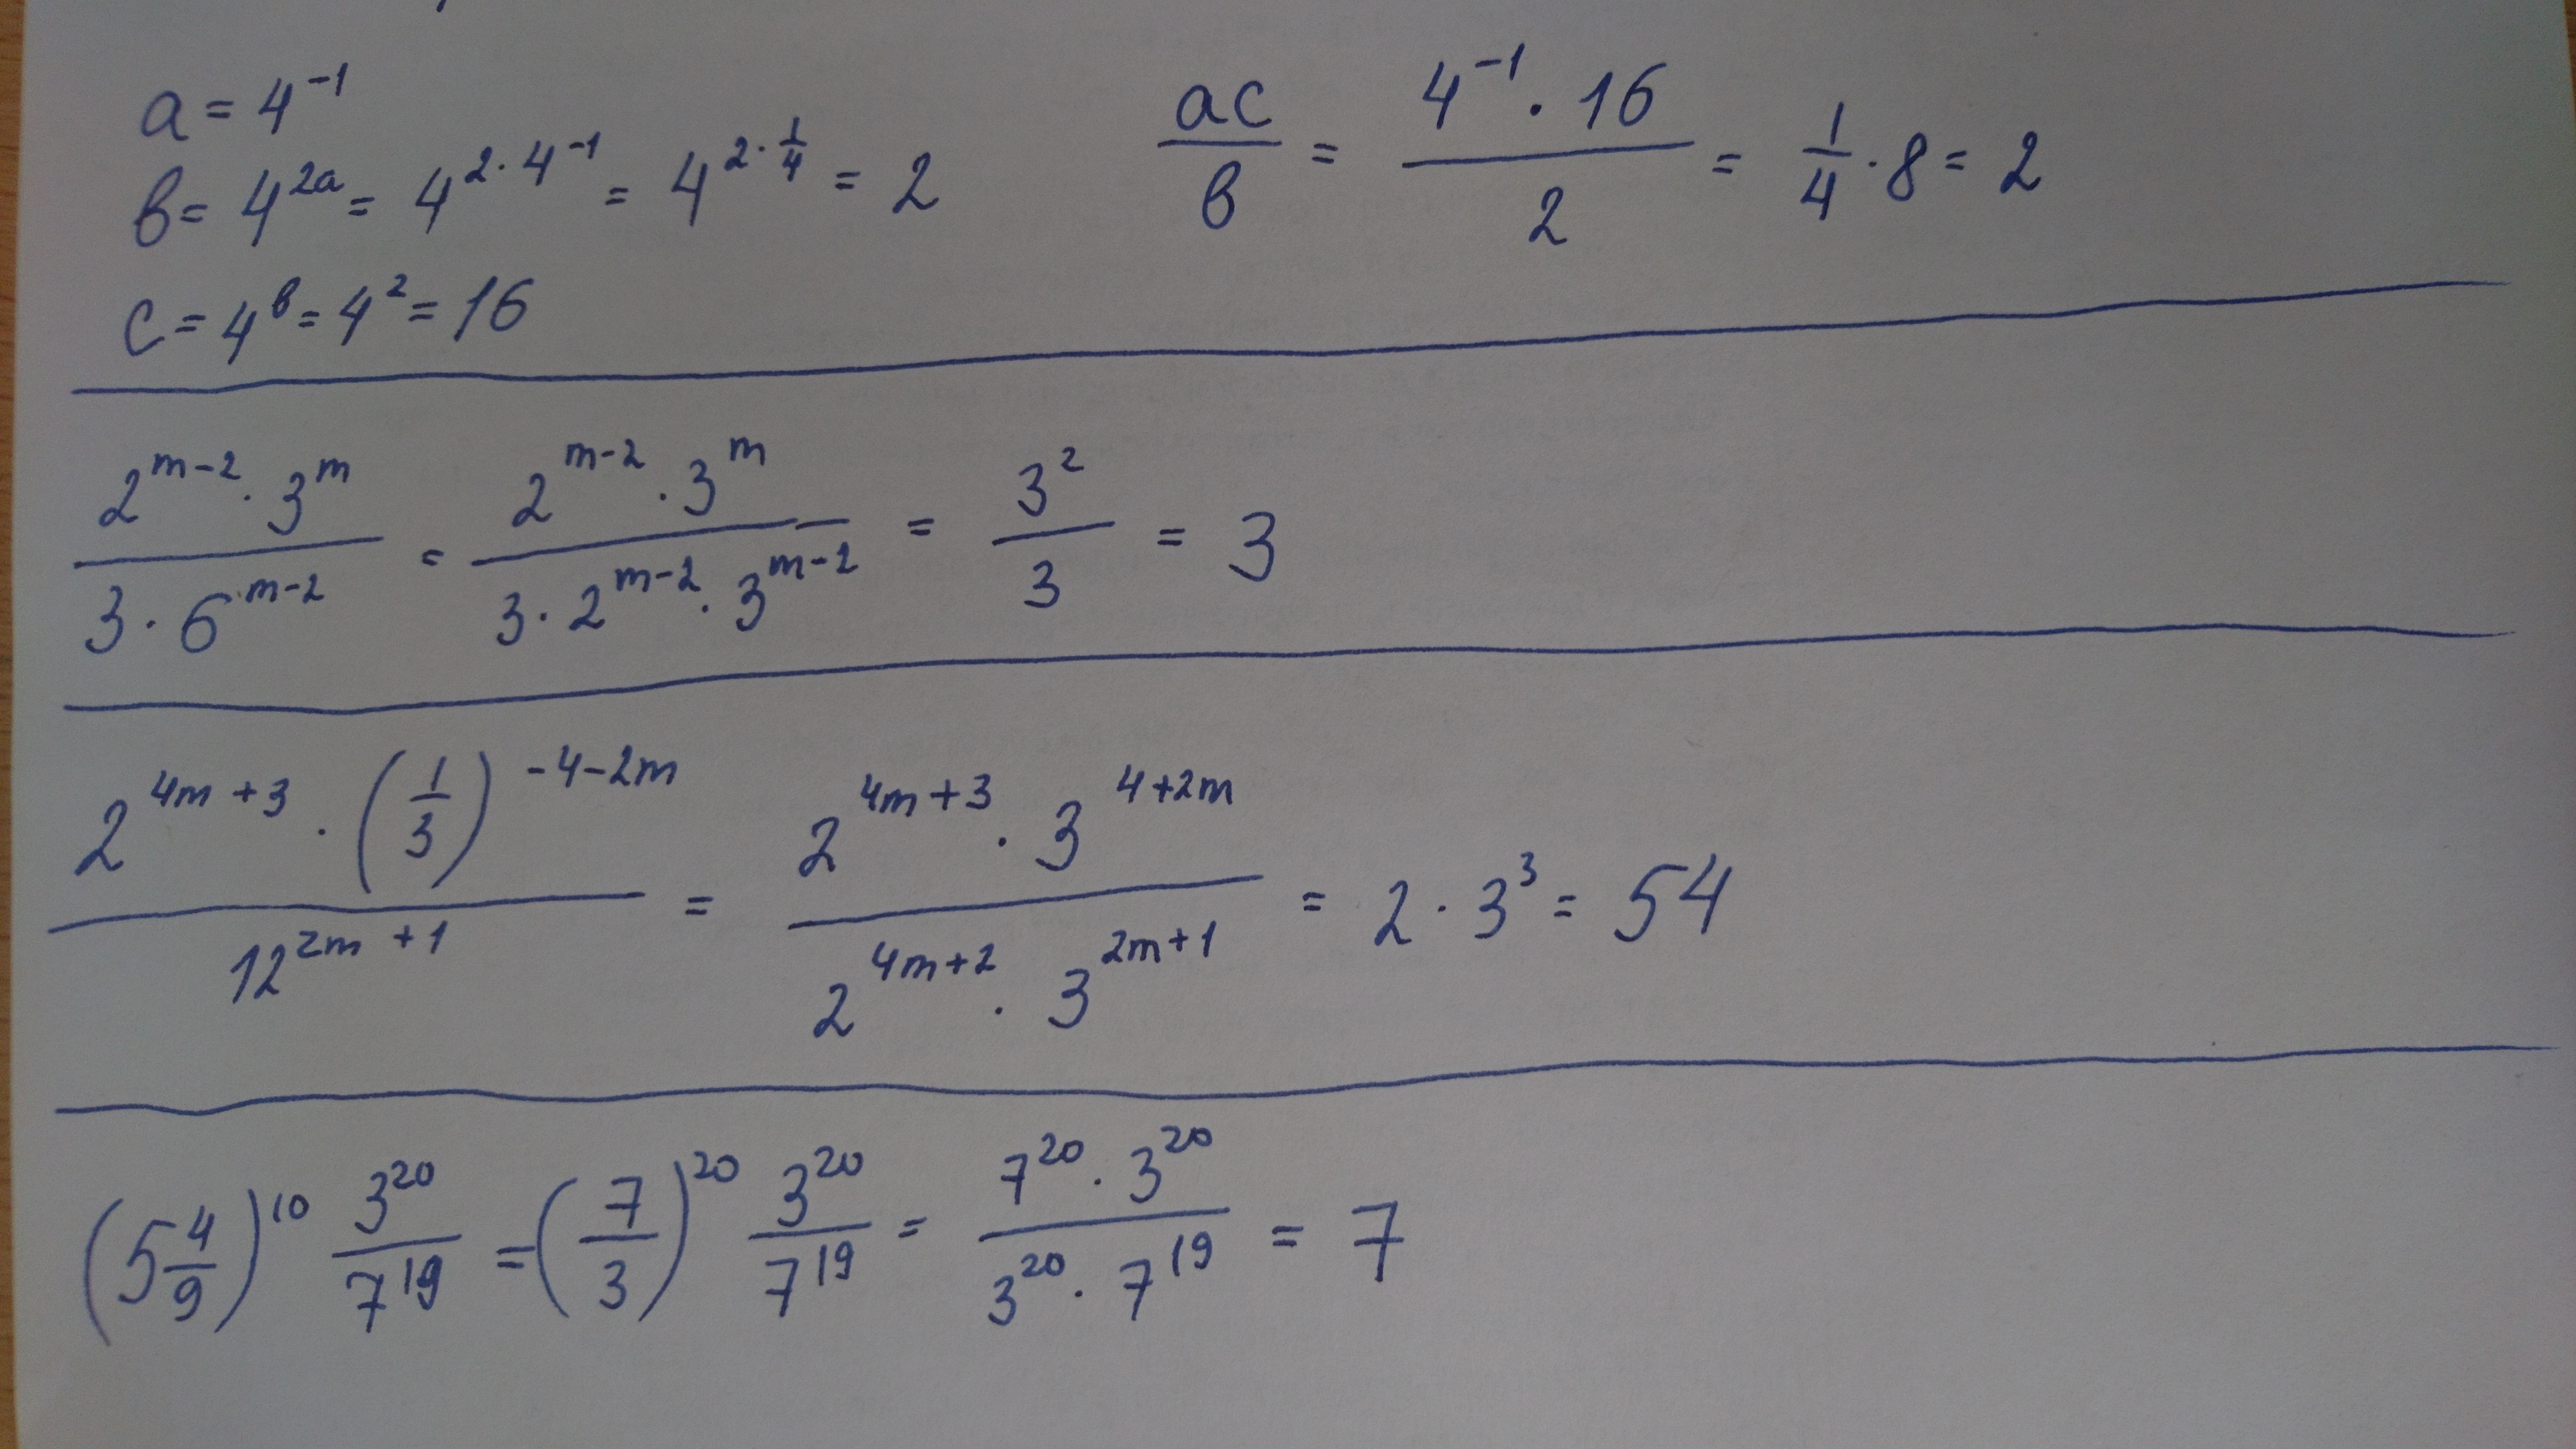 a = 4^{-1}
b = 4^{2a} = 4^{2·4^{-1}} = 4^{2·\frac{1}{4}} = 2
c = 4^b = 4^2 = 16
\frac{ac}{b} = \frac{4^{-1} · 16}{2} = \frac{1}{4} · 8 = 2
\frac{2^{m-2} · 3^m}{3 · 6^{m-2}} = \frac{2^{m-2} · 3^m}{3 · 2^{m-2} · 3^{m-2}} = \frac{3^2}{3} = 3
\frac{2^{4m+3} · (\frac{1}{3})^{-4-2m}}{12^{2m+1}} = \frac{2^{4m+3} · 3^{4+2m}}{2^{4m+2} · 3^{2m+1}} = 2 · 3^3 = 54
(5\frac{4}{9})^{10} \frac{3^{20}}{7^{19}} = (\frac{7}{3})^{20} \frac{3^{20}}{7^{19}} = \frac{7^{20} · 3^{20}}{3^{20} · 7^{19}} = 7